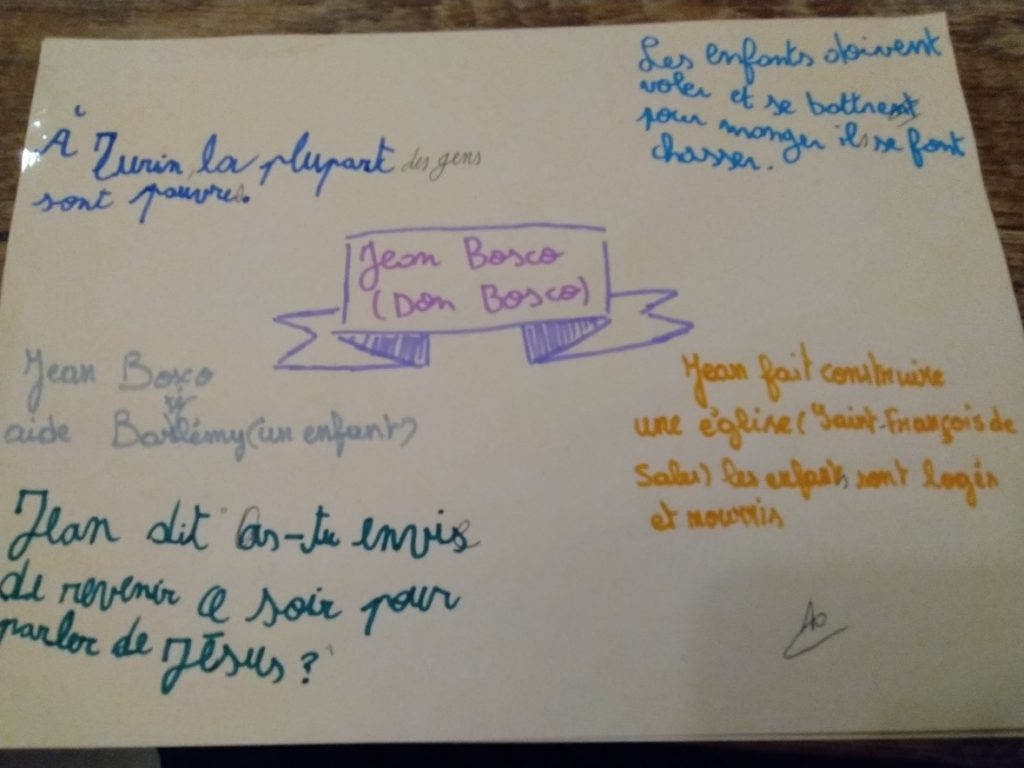 À Turin, la plupart des gens
sont pauvres.
Les enfants doivent
voler et se battre
pour manger ils se font
chasser.
Jean Bosco
(Don Bosco)
Jean Bosco
aide Barlémy (un enfant)
Jean fait construire
une église (Saint-François de
Sales) les enfants sont logés
et nourris
Jean dit "As-tu envie
de revenir ce soir pour
parler de Jésus ?"